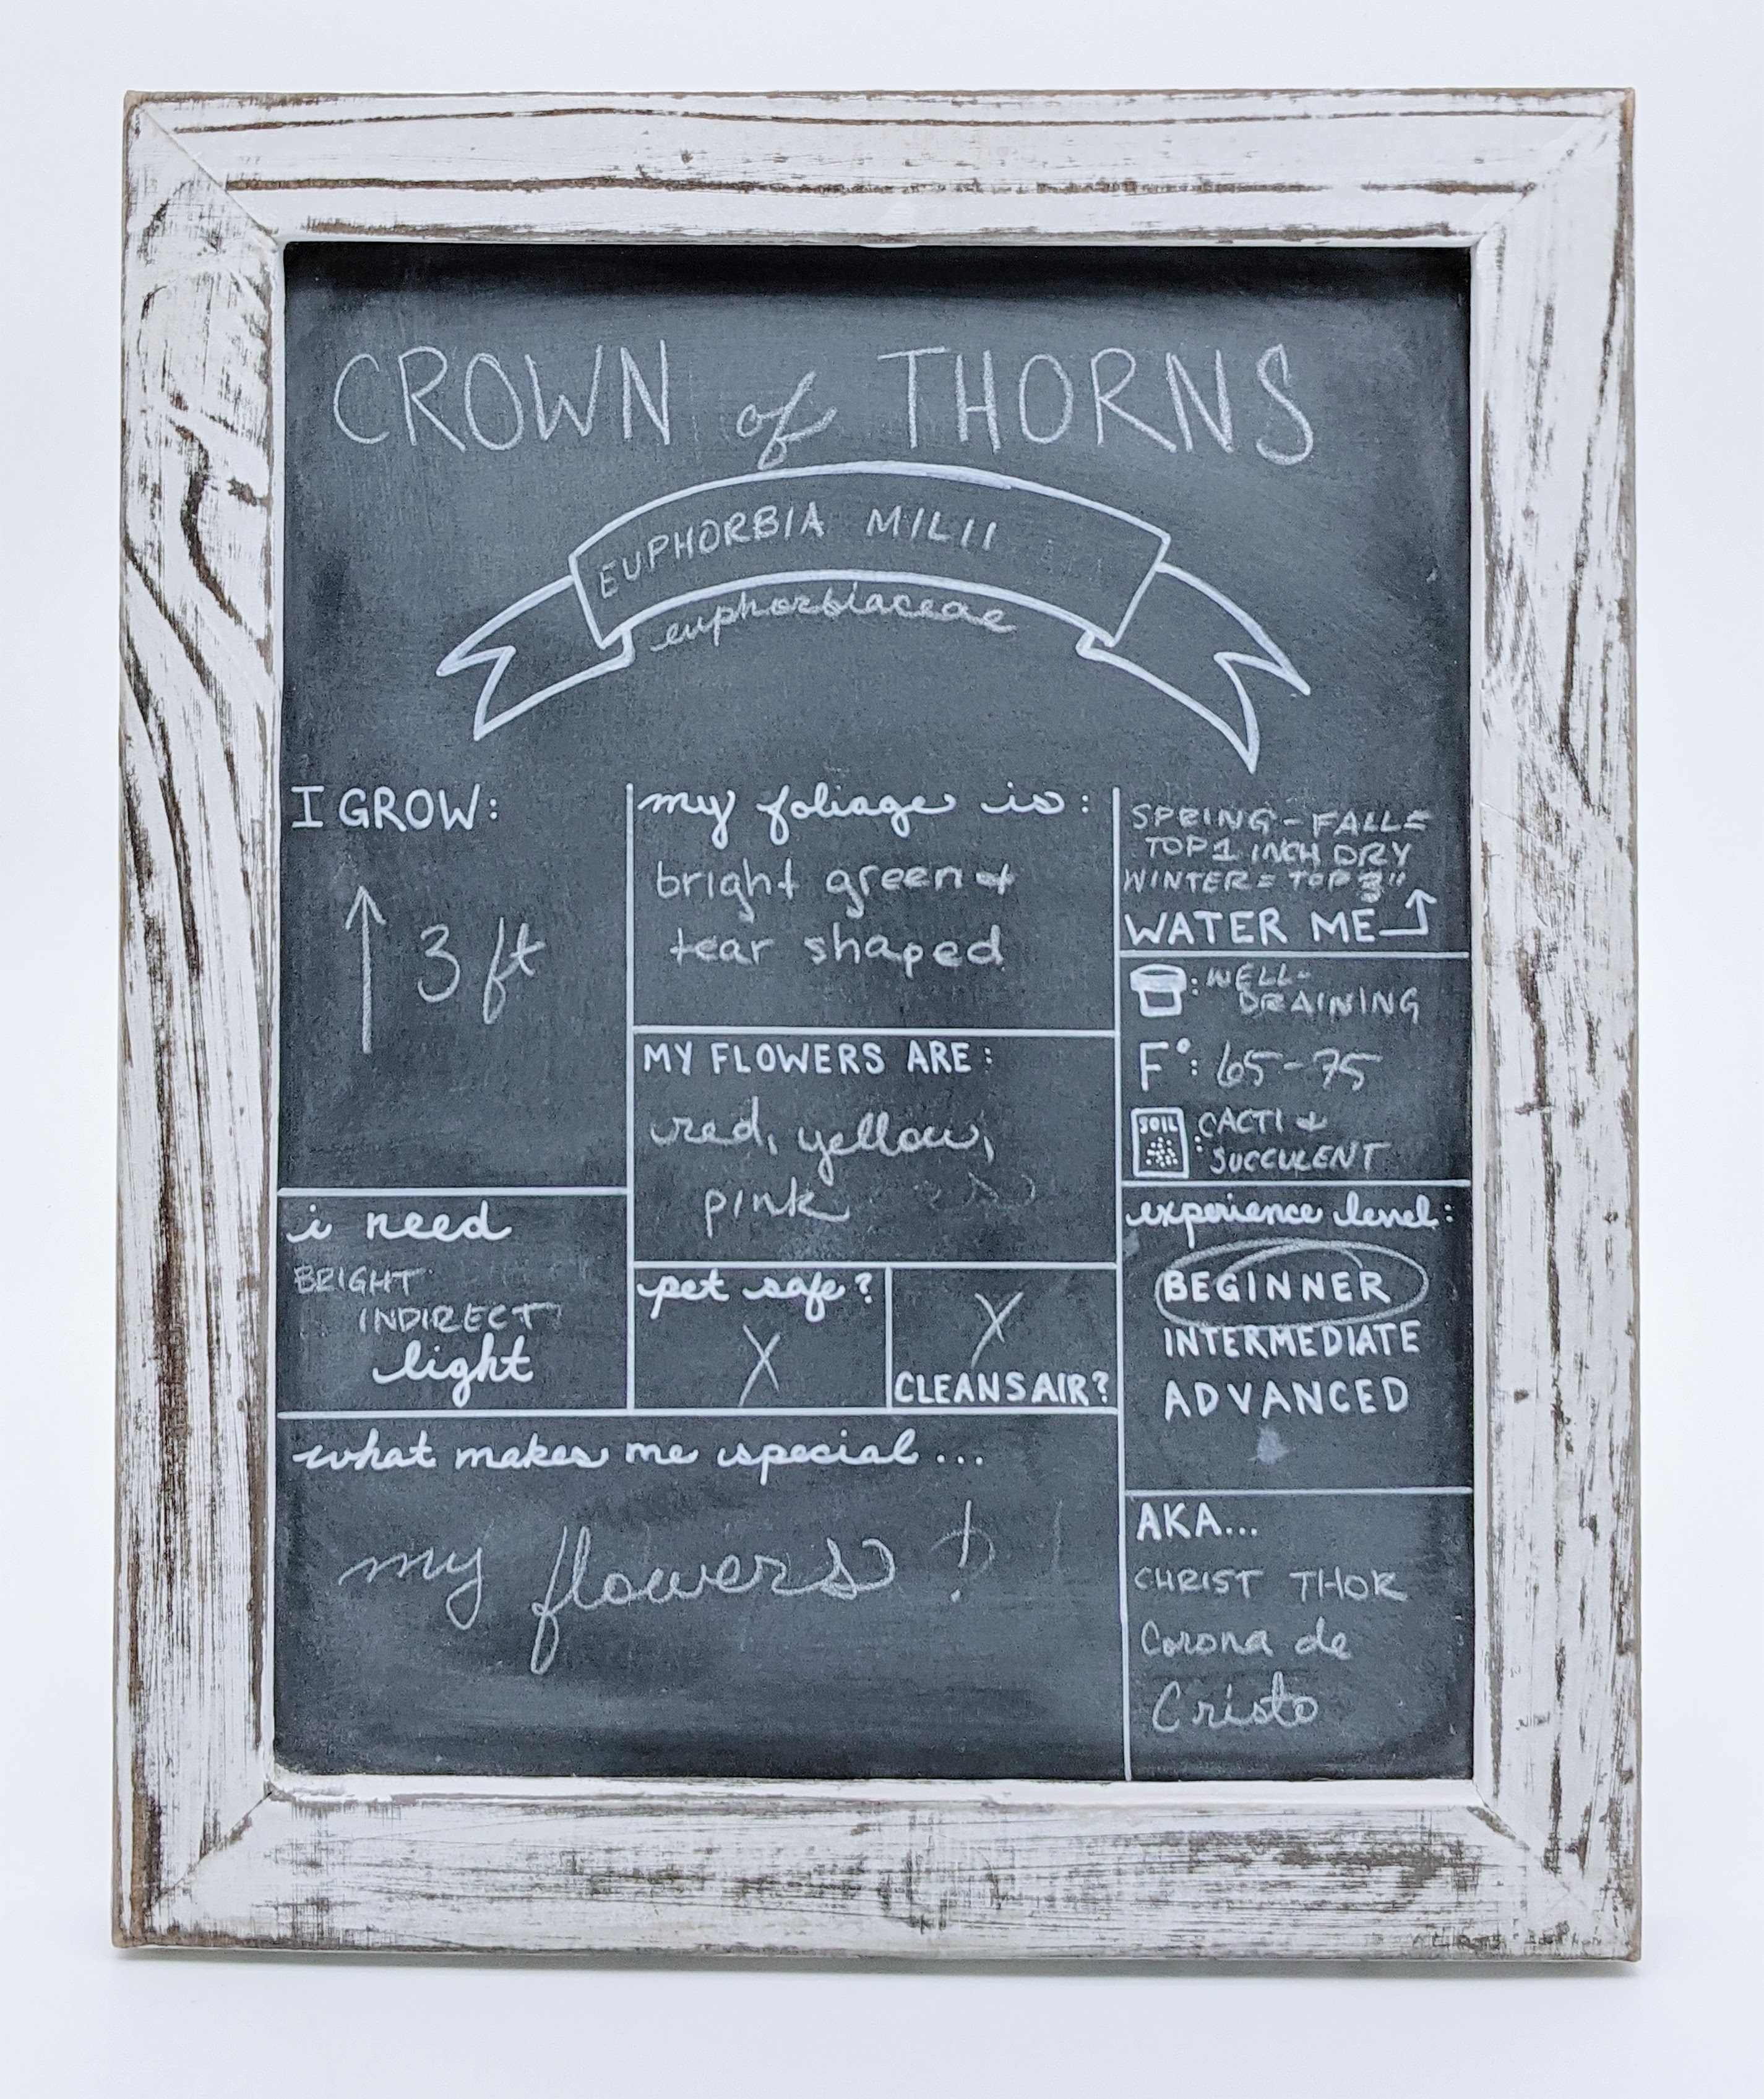 CROWN of THORNS
EUPHORBIA MILII
euphorbiaceae
I GROW:
3 ft
my foliage is:
bright green +
tear shaped
SPRING - FALL =
TOP 1 INCH DRY
WINTER = TOP 3"
WATER ME
: WELL-
DRAINING
F°: 65-75
SOIL : CACTI &
SUCCULENT
MY FLOWERS ARE:
red, yellow,
pink
i need
BRIGHT
INDIRECT
light
pet safe?
X
X
CLEANS AIR?
experience level:
BEGINNER
INTERMEDIATE
ADVANCED
what makes me special...
my flowers!
AKA...
CHRIST THOR
Corona de
Cristo